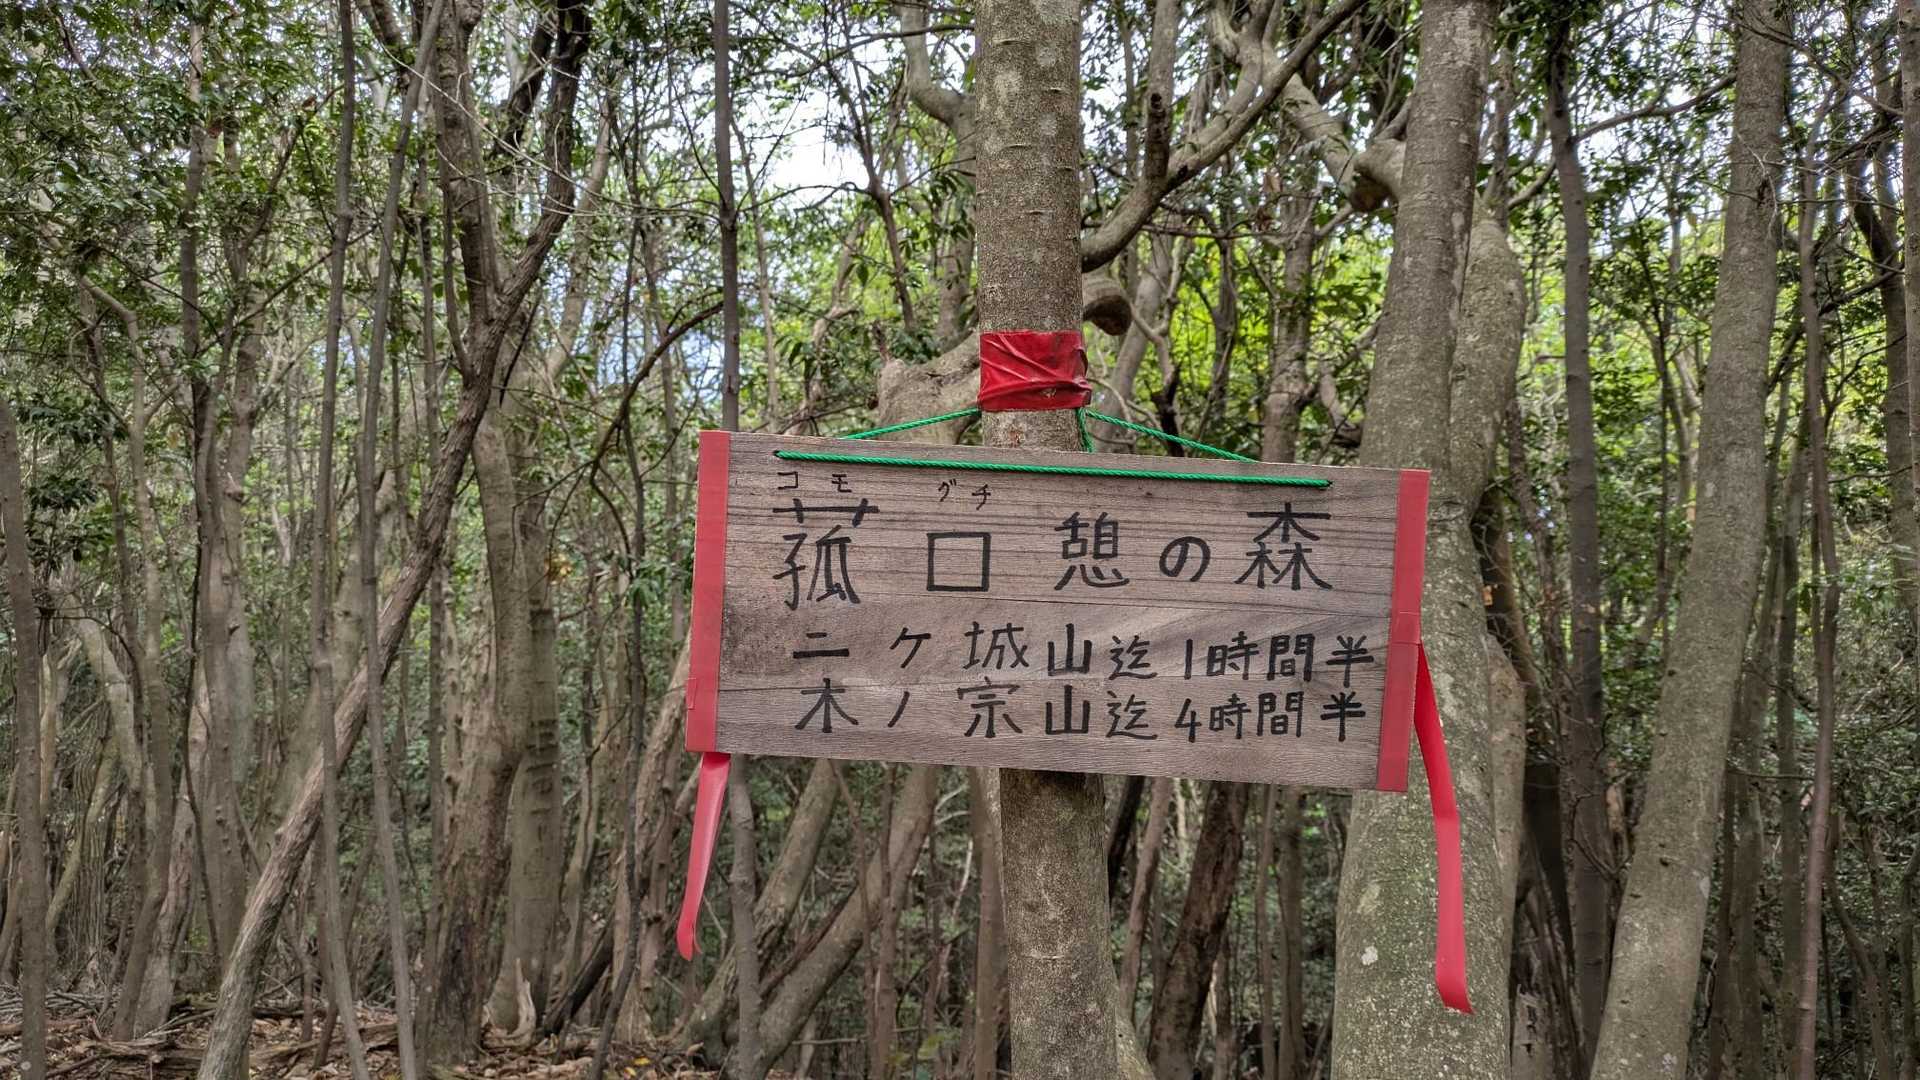 コモ グチ
菰口憩の森
ニヶ城山迄1時間半
木ノ宗山迄4時間半